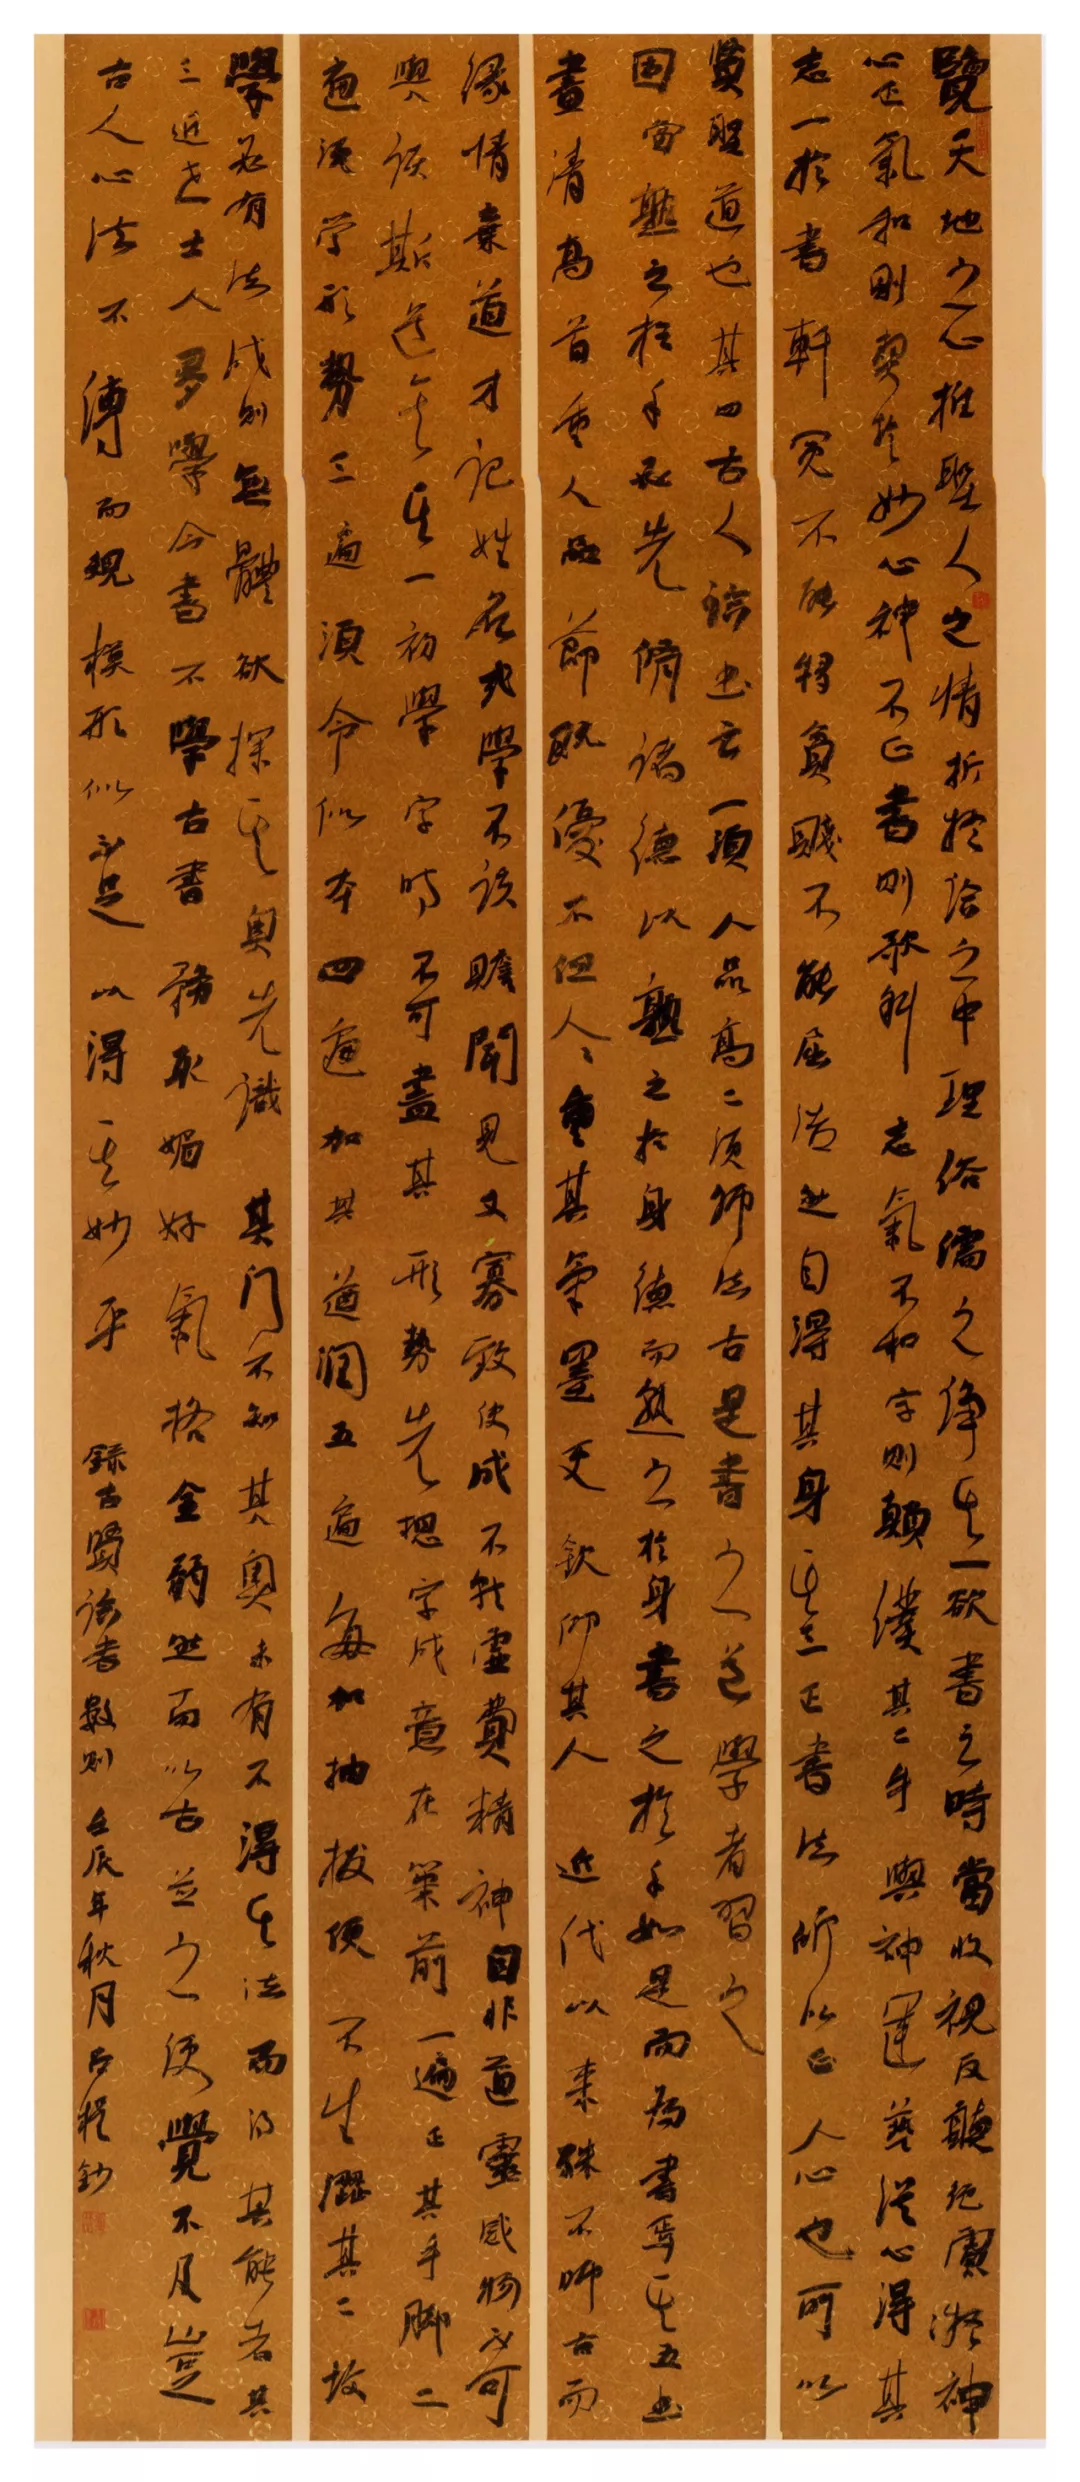 覽天地之心推聖人之情折於論之中理俗儒之諍其一欲書之時當收視反聽絕慮凝神
心正氣和則契於妙心神不正書則欹斜志氣不和字則顛僕其二手與神運藝從心得其
志一於書軒冕不能移貧賤不能屈浩然自得其身其三正書法所以正人心也可以
賢聖道也其四古人論書云一須人品高二須師法古是書之道學者習之
固當熟之於手必先脩諸德以熟之於身德而熟之於身書之於手如是而為書焉其五書
畫清高首重人品節既優不但人人重其筆墨更欽仰其人近代以來殊不師古而
緣情棄道才記姓名或學不該贍聞見又寡致使成不就虛費精神自非通靈感物不可
與談斯道矣其一初學字時不可盡其形勢先想字成意在筆前一遍正其手腳二
遍須學形勢三遍須令似本四遍加其遒潤五遍每加抽拔使不生澀其二故
學必有法成則無體欲探其奧先識其門不知其奧未有不得其法而得其能者其
三近世士人多學今書不學古書務取媚好氣格全弱然而以古並之便覺不及豈
古人心法不傳而規模形似不足以得其妙乎 錄古賢論書數則 壬辰年秋月 鈔